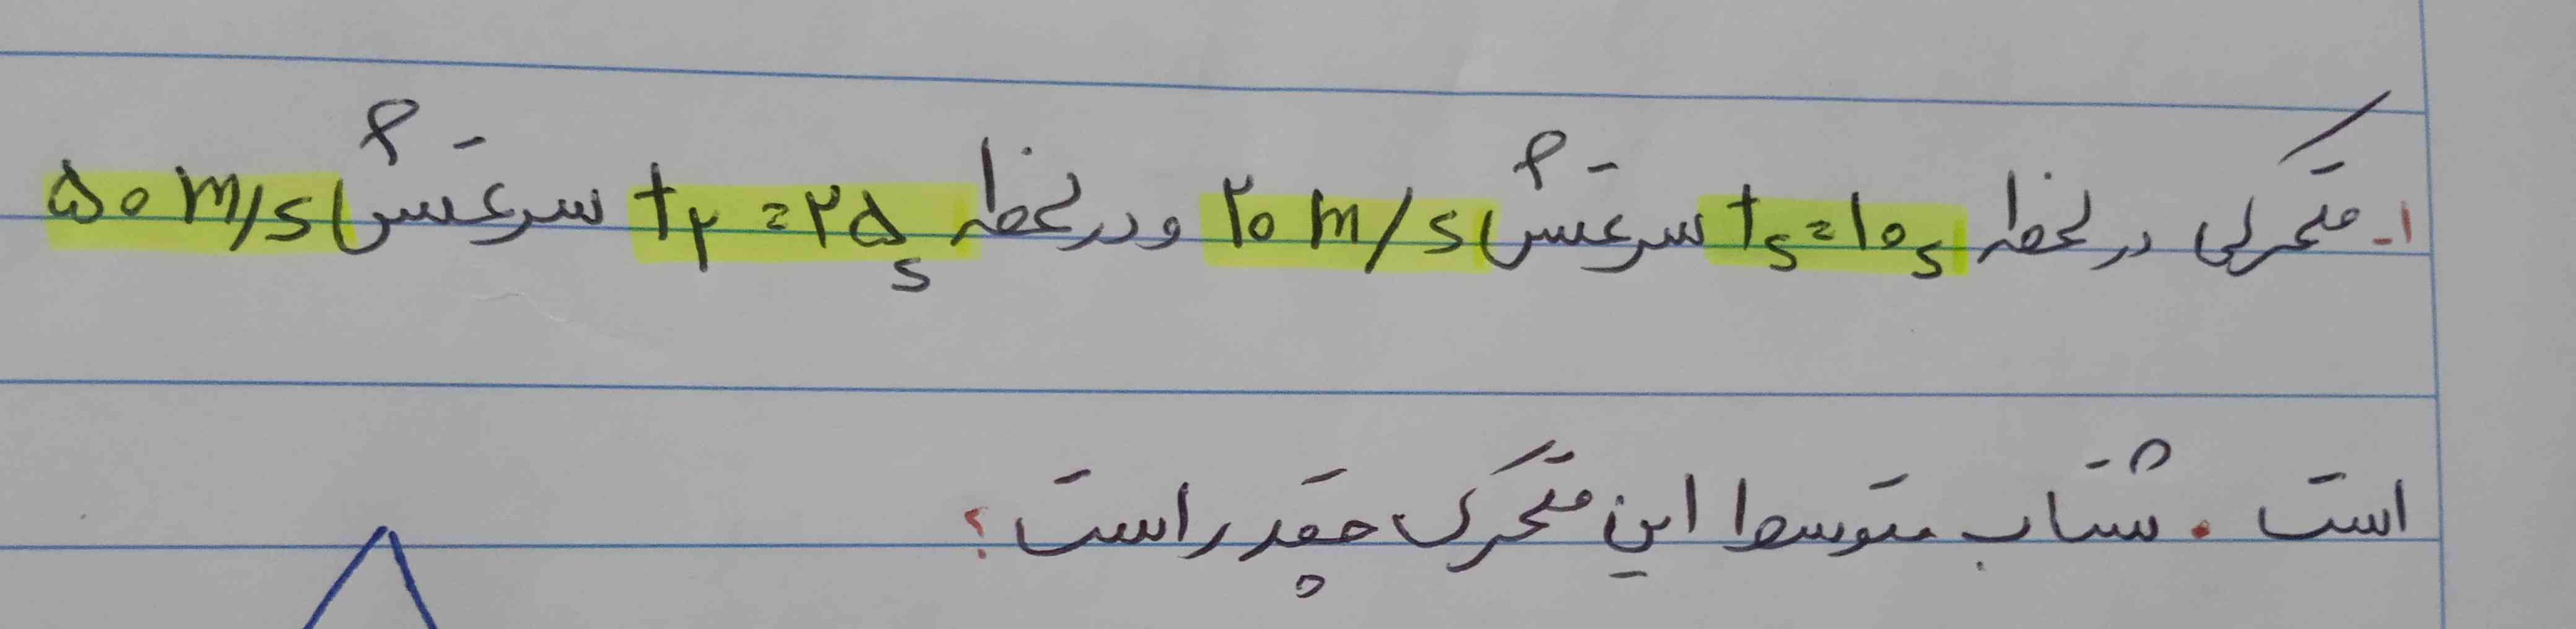 ۱- متحرکی در لحظه tₛ = ۱۰s سرعتش ۲۰ m/s و در لحظه t₂ = ۲۵s سرعتش ۵۰ m/s
است . شتاب متوسط این متحرک چقدر است ؟